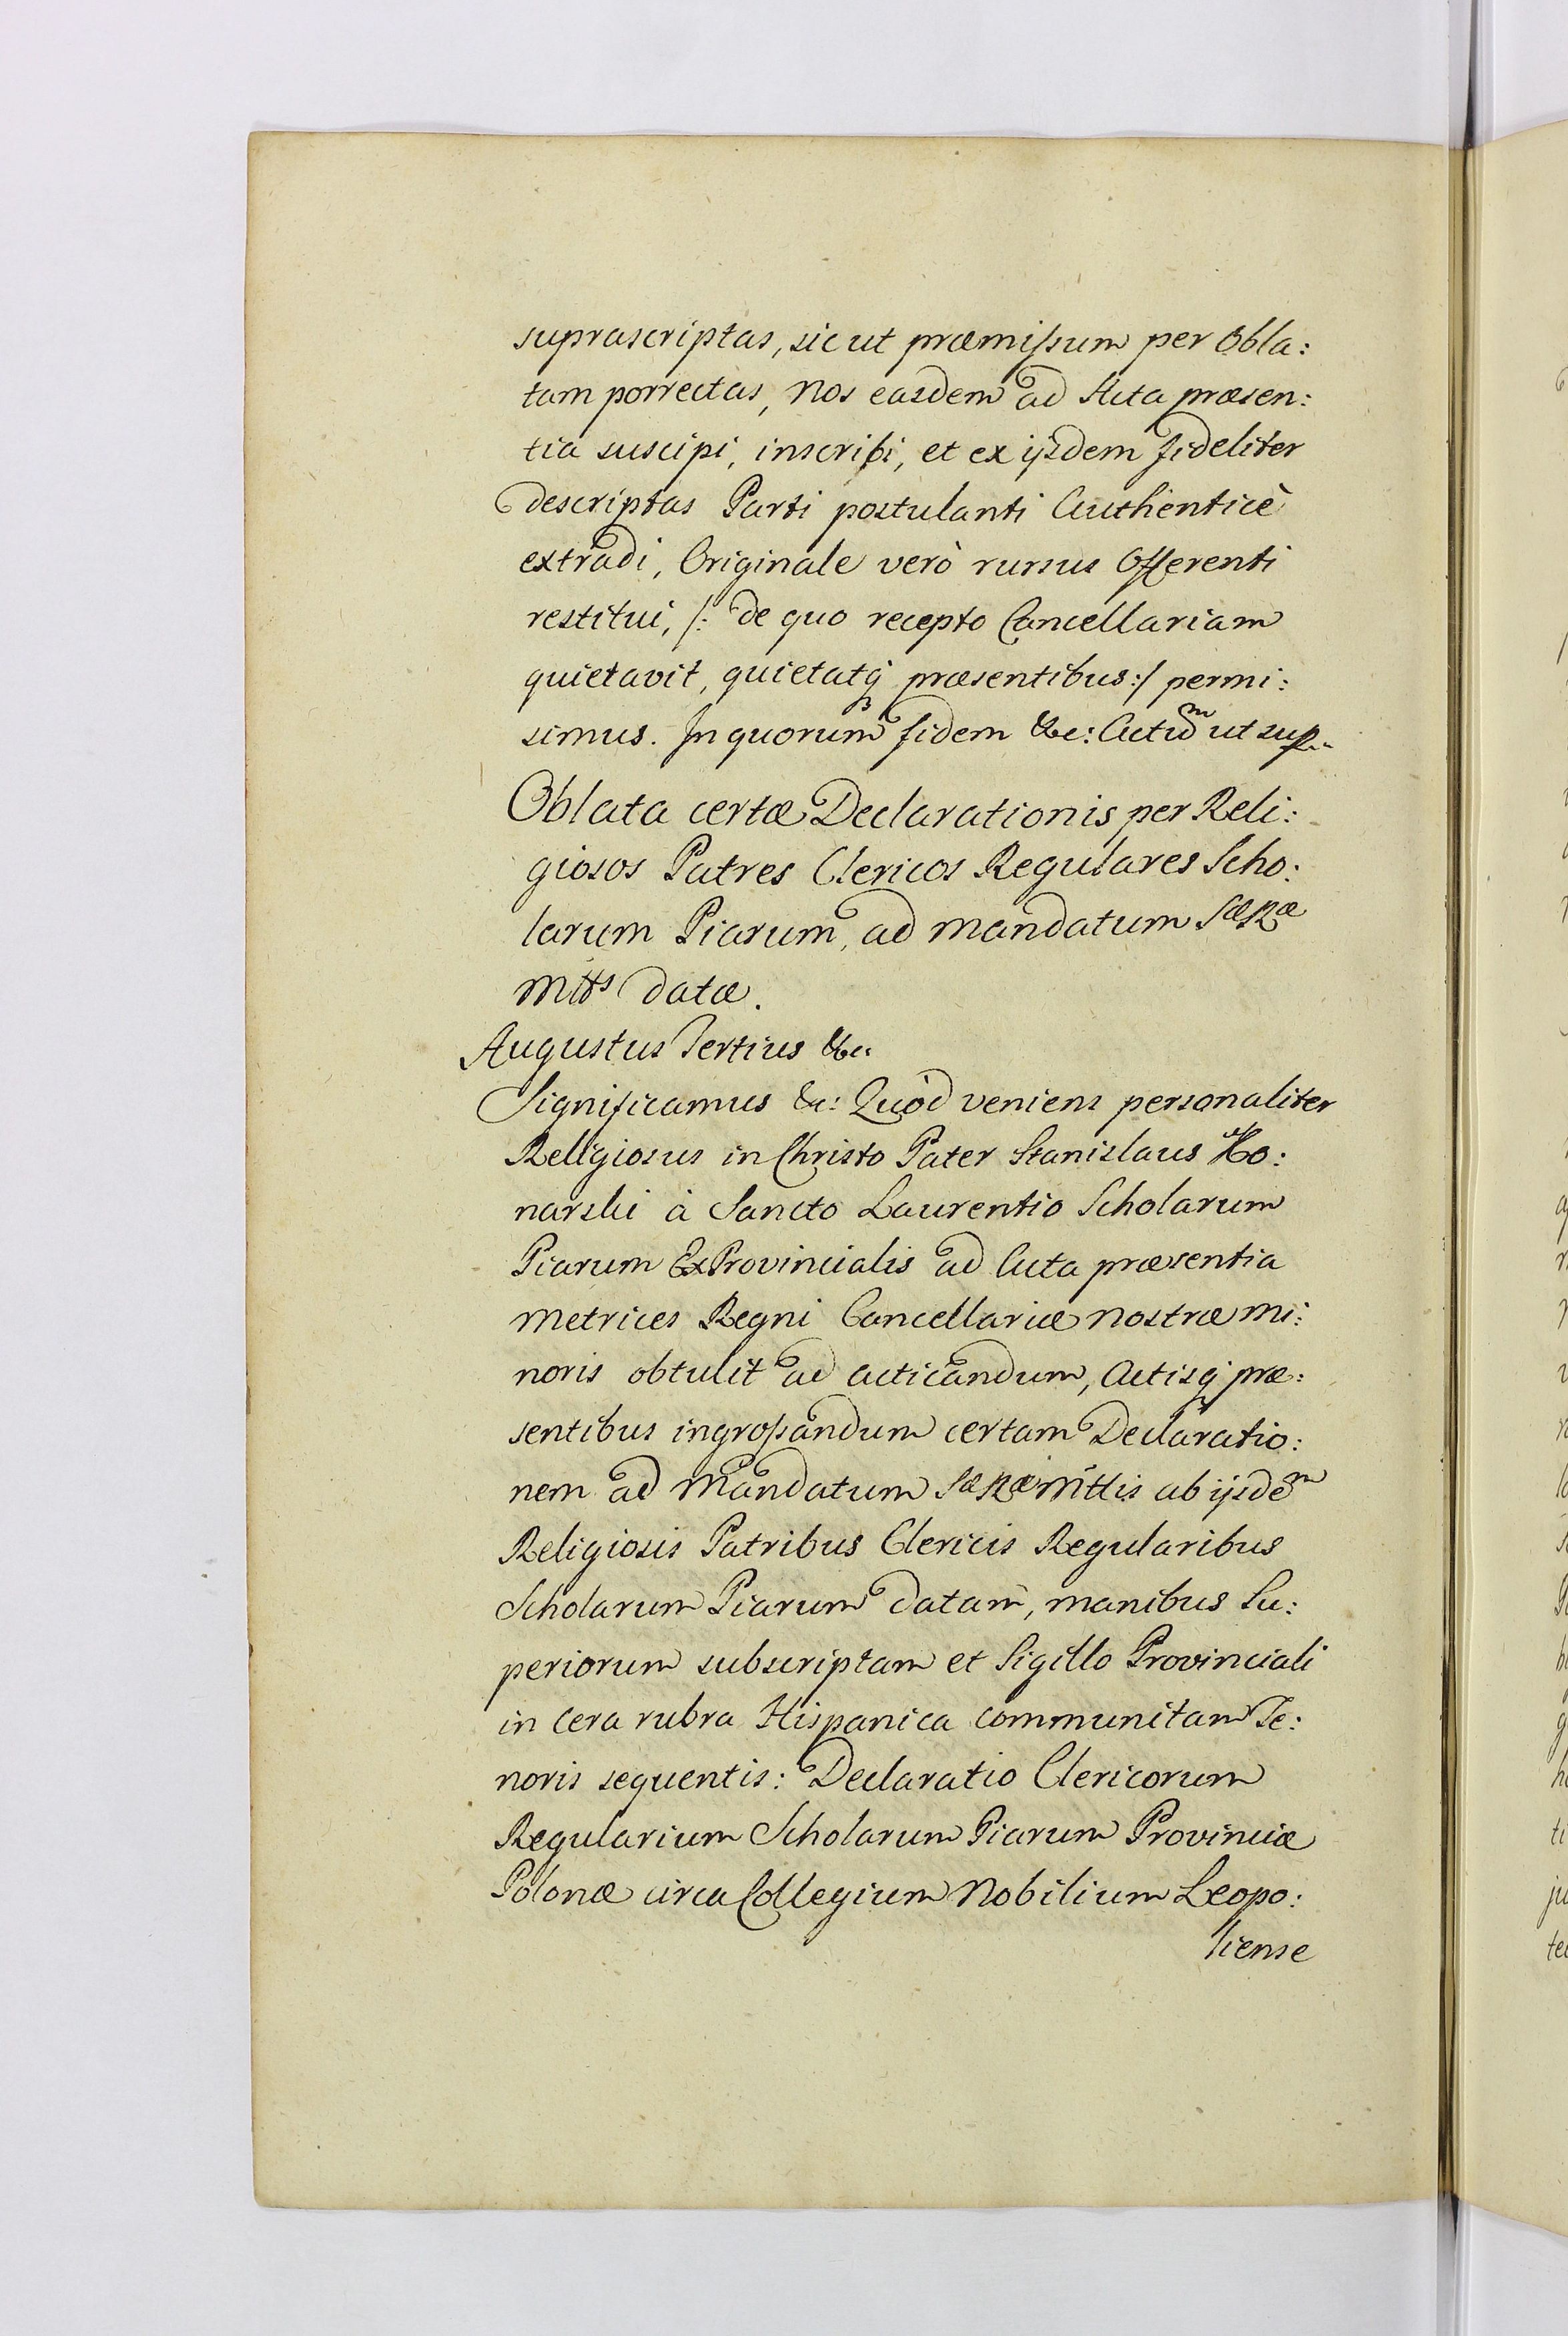 suprascriptas, sicut præmissum per Obla:
tam porrectas, Nos easdem ad Acta præsen:
tia suscipi, inscribi, et ex ijsdem fideliter
descriptas Parti postulanti Authenticè
extradi, Originale verò rursus Offerenti
restitui, /: de quo recepto Cancellariam
quietavit, quietatq præsentibus :/ permi:
simus. In quorum fidem &c: Actum ut sup.
Oblata certæ Declarationis per Reli:
giosos Patres Clericos Regulares Scho:
larum Piarum, ad mandatum Sæ Ræ
Mttis datæ.
Augustus Tertius &c
Significamus &c: Quòd veniens personaliter
Religiosus in Christo Pater Stanislaus Ko:
narski à Sancto Laurentio Scholarum
Piarum ExProvincialis ad Acta præsentia
Metrices Regni Cancellariæ nostræ Mi:
noris obtulit ad acticandum, Actisq præ:
sentibus ingrossandum certam Declaratio:
nem ad Mandatum Sæ Ræ Mttis ab ijsdem
Religiosis Patribus Clericis Regularibus
Scholarum Piarum datam, manibus Su:
periorum subscriptam et Sigillo Provinciali
in Cera rubra Hispanica communitam Te:
noris sequentis: Declaratio Clericorum
Regularium Scholarum Piarum Provinciæ
Polonæ circa Collegium Nobilium Leopo:
liense